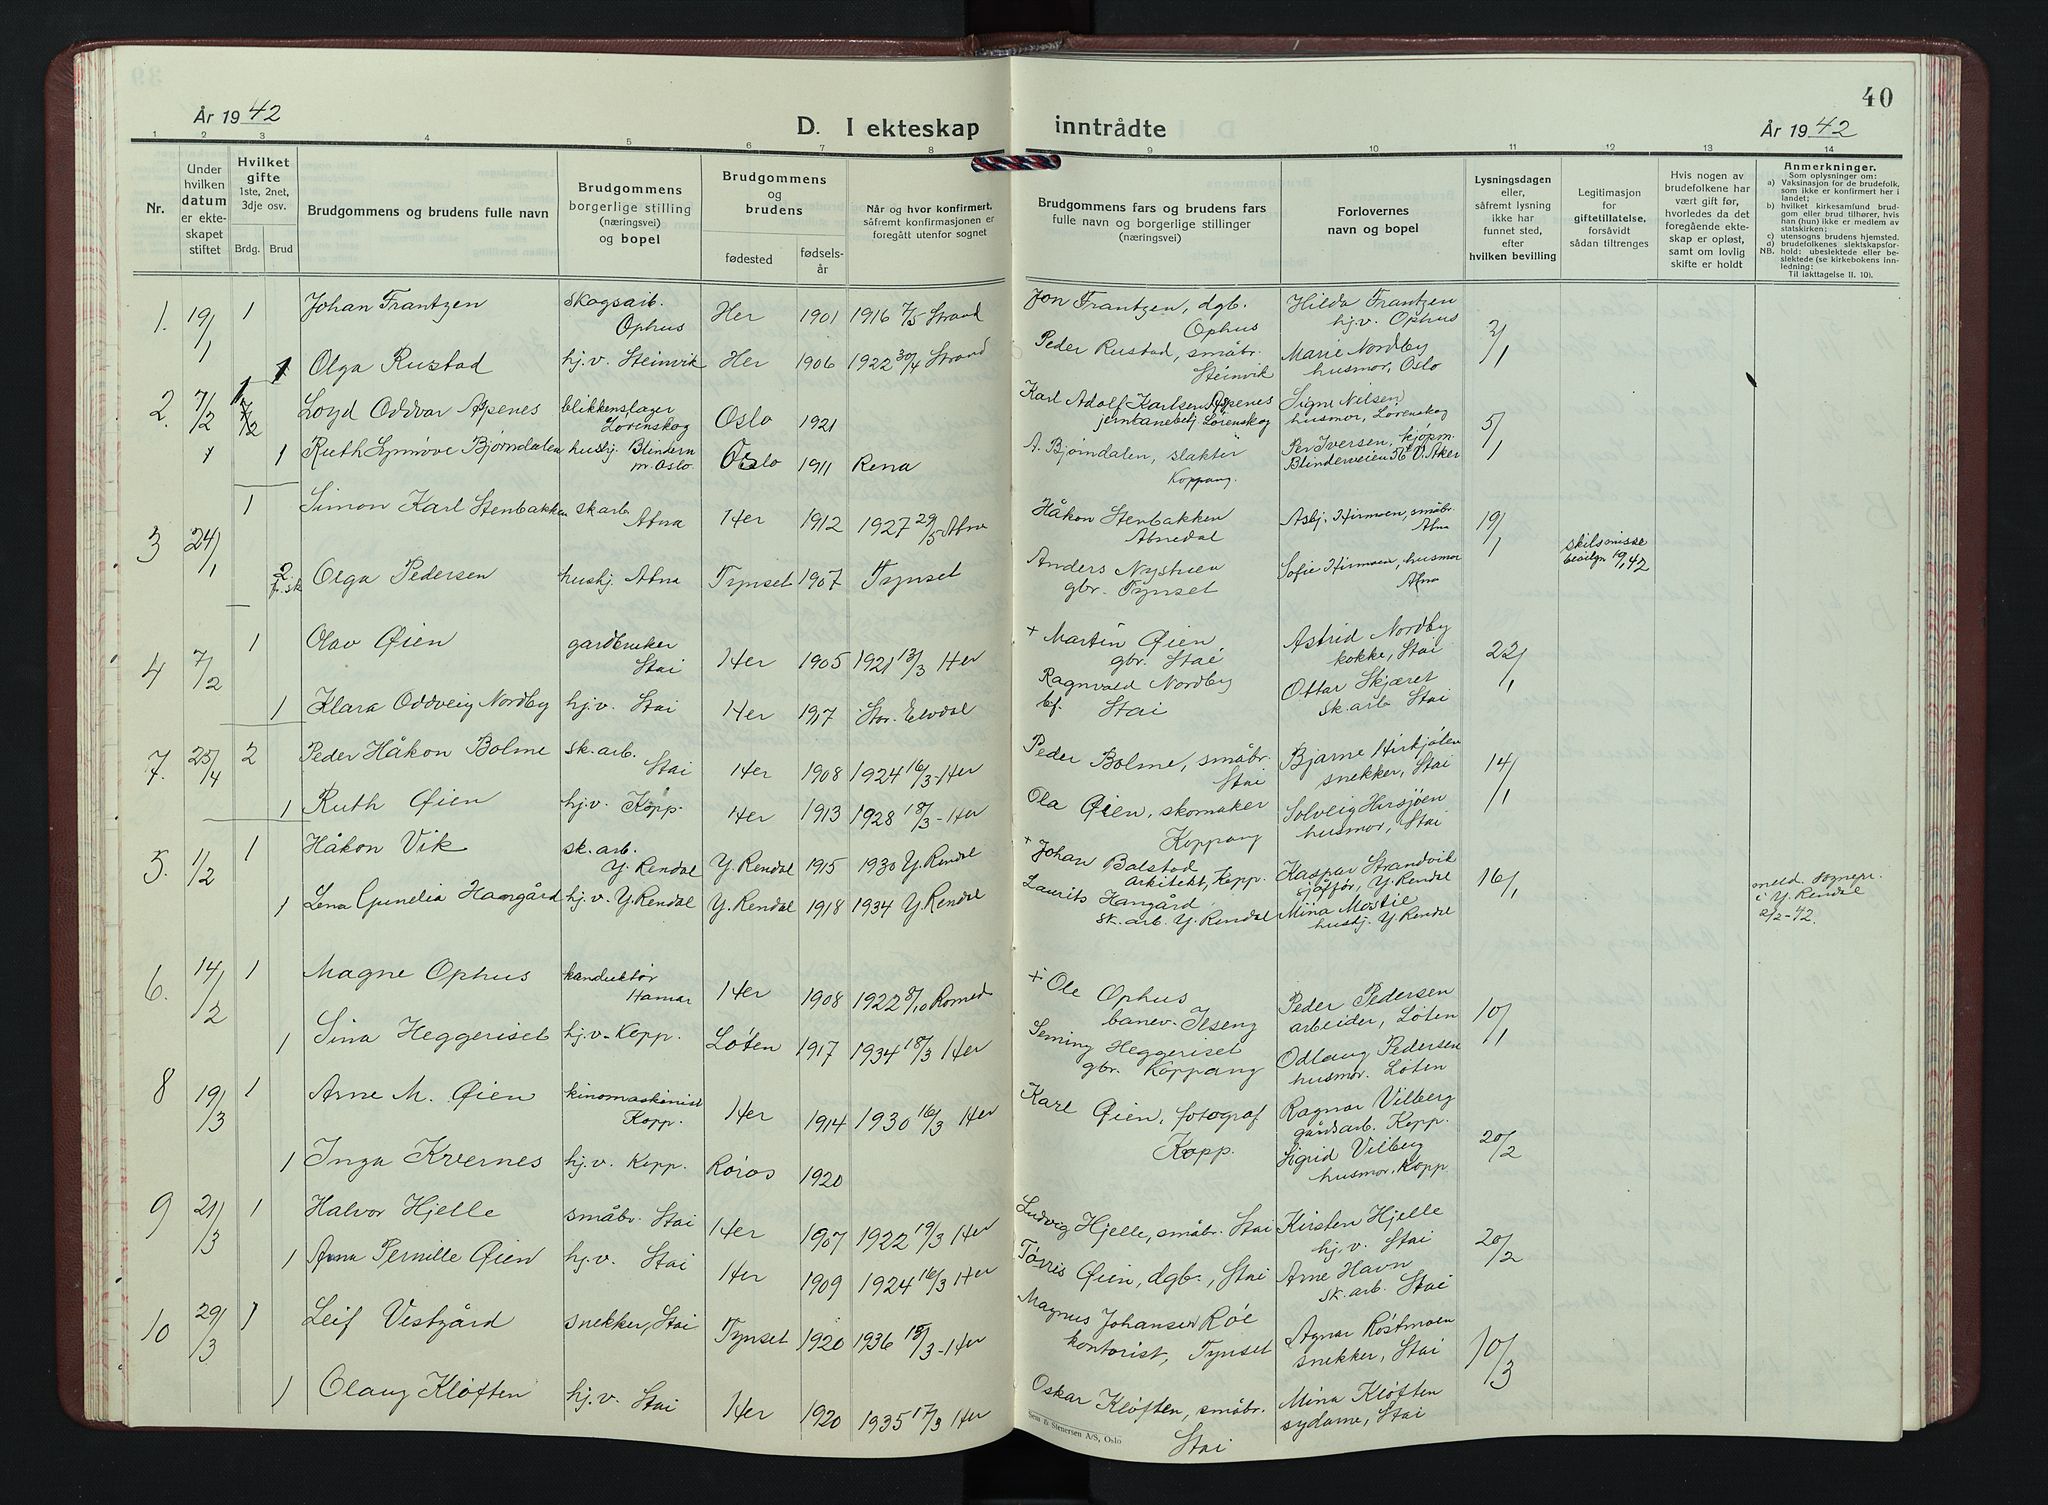 40
År 1942
D. I ekteskap inntrådte
År 1942
1 2 3 4 5 6 7 8 9 10 11 12 13 14
Nr.
Under hvilken datum er ekteskapet stiftet
Hvilket gifte 1ste, 2net, 3dje osv.
Brdg. Brud
Brudgommens og brudens fulle navn
Brudgommens borgerlige stilling (næringsvei) og bopel
Brudgommens og brudens
fødested
fødselsår
Når og hvor konfirmert, såfremt konfirmasjonen er foregått utenfor sognet
Brudgommens fars og brudens fars fulle navn og borgerlige stillinger (næringsvei)
Forlovernes navn og bopel
Lysningsdagen eller, såfremt lysning ikke har funnet sted, efter hvilken bevilling
Legitimasjon for giftetillatelse, forsåvidt sådan tiltrenges
Hvis nogen av brudefolkene har vært gift før, hvorledes da det foregående ekteskap er opløst, samt om lovlig skifte er holdt
Anmerkninger.
Som oplysninger om:
a) Vaksinasjon for de brudefolk, som ikke er konfirmert her i landet;
b) hvilket kirkesamfund brudgom eller brud tilhører, hvis han (hun) ikke er medlem av statskirken;
c) utensogns brudens hjemsted.
d) brudefolkenes slektskapsforhold: ubeslektede eller beslektede (se kirkebokens innledning:
NB. Til iakttagelse II. 10).
1. 19/1 1 Johan Frantzen skogsarb. Ophus Her 1901 1916 7/5 Strand Jon Frantzen, dgb. Ophus Hilda Frantzen hj.v. Ophus 2/1
1 Olga Rustad hj.v. Steinvik Her 1906 1922 30/4 Strand Peder Rustad, småbr. Steinvik Marie Nordby husmor, Oslo
2. 7/2 1 Loyd Oddvar Aspenes blikkenslager Lørenskog Oslo 1921 Karl Adolf Karlsen Aspenes Lørenskog Signe Nilsen husmor, Lørenskog 5/1
1 Ruth Synnøve Bjørndalen hushj. Blindern m. Oslo Oslo 1911 Rena A. Bjørndalen, slakter Koppang. Per Iversen, kjøpm. Blindernveien 56 V. Aker
3 24/1 1 Simon Karl Stenbakken sk.arb. Atna Her 1912 1927 29/5 Atna Håkon Stenbakken Atnedal Asbj. Hirmoen, småbr. Atna 19/1
2 f.sk Olga Pedersen hushj. Atna Tynset 1907 Tynset Anders Nystuen gbr. Tynset Sofie Hirmoen, husmor Atna skilsmisse 19/1 42
4 7/2 1 Olav Øien gardbruker Stai Her 1905 1921 13/3 Her + Martin Øien gbr. Stai Astrid Nordby kokke, Stai 22/1
1 Klara Oddveig Nordby hj.v. Stai Her 1917 Stor-Elvdal Ragnvald Nordby bf. Stai Ottar Skjæret sk.arb Stai
7. 25/4 2 Peder Håkon Bolme sk.arb. Stai Her 1908 1924 16/3-Her Peder Bolme, småbr. Stai Bjarne Hirkjølen snekker, Stai 14/1
1 Ruth Øien hj.v. Kopp. Her 1913 1928 18/3-Her Ola Øien, skomaker Koppang Solveig Hirsjøen husmor, Stai
5. 1/2 1 Håkon Vik sk.arb. Y. Rendal Y. Rendal 1915 1930 Y. Rendal + Johan Balstad arkitekt, Kopp. Kaspar Strandvik sjåfør, Y. Rendal 16/1 meld. sognepr. i Y. Rendal 2/2-42.
1 Lena Gunelia Hamgård hj.v. Y. Rendal Y. Rendal 1918 1934 Y. Rendal Laurits Hangård sk.arb. Y. Rendal Mina Mostie hushj. Y. Rendal
6. 14/2 1 Magne Ophus konduktør Hamar Her 1908 1922 8/10 Romed + Ole Ophus banev. Ilseng Peder Pedersen arbeider, Løten 10/1
1 Sina Heggeriset hj.v. Kopp. Løten 1917 1934 18/3 Her Seming Heggeriset gbr. Koppang Odlaug Pedersen husmor. Løten
8 19/3 1 Arne M. Øien kinomaskinist Kopp. Her 1914 1930 16/3 Her Karl Øien, fotograf Kopp. Ragnar Vilberg gårdsarb. Kopp. 20/2
1 Inga Kvernes hj.v. Kopp. Røros 1920 Sigrid Vilberg husmor, Kopp
9 21/3 1 Halvor Hjelle småbr. Stai Her 1907 1922 19/3 Her Ludvig Hjelle, småbr. Stai Kirsten Hjelle hj.v. Stai 20/2
1 Anna Pernille Øien hj.v. Stai Her 1909 1924 16/3 Her Tørris Øien, dgb., Stai Arne Havn sk.arb. Stai
10 29/3 1 Leif Vestgård snekker, Stai Tynset 1920 1936 15/3-Her Magnus Johansen Røe kontorist, Tynset Agnar Røstmoen snekker, Stai 10/3
1 Olaug Kløften hj.v. Stai Her 1920 1935 17/3 Her Oskar Kløften, småbr. Stai Mina Kløften sydame, Stai
Sem & Stenersen A/S, Oslo